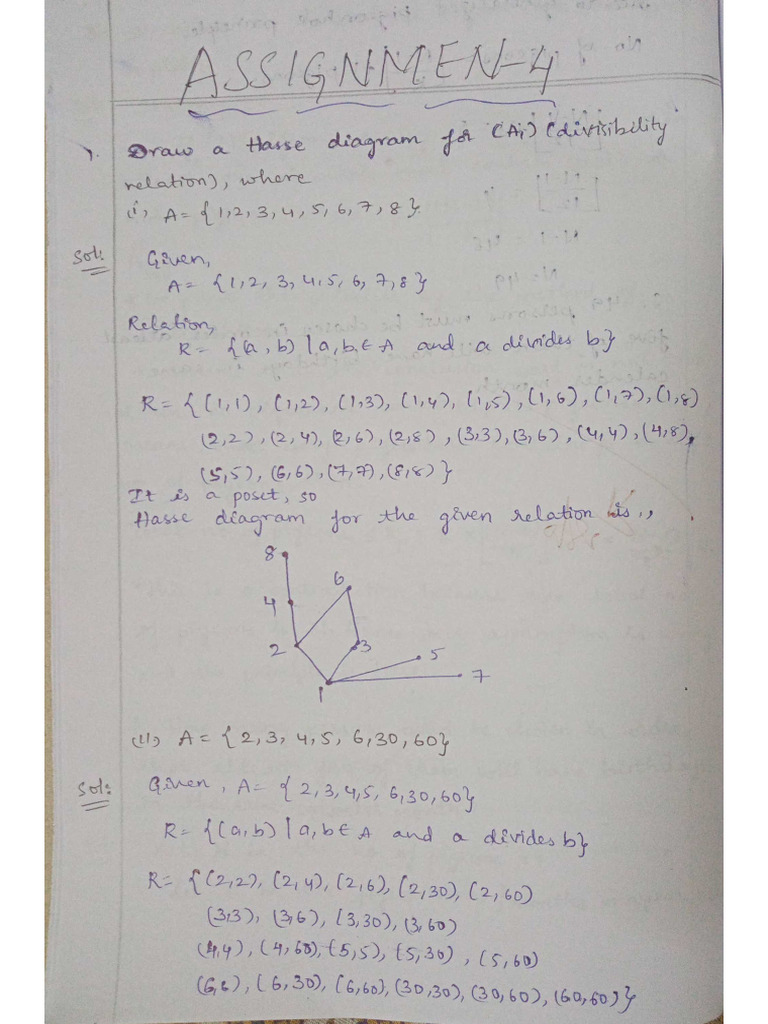 ASSIGNMEN-4
1. Draw a Hasse diagram for (A,) (divisibility
relation), where
(i), A = {1,2,3,4,5,6,7,8}.
Sol: Given,
A = {1,2,3,4,5,6,7,8}
Relation,
R = {(a,b) | a,b ∈ A and a divides b}
R = {(1,1), (1,2), (1,3), (1,4), (1,5), (1,6), (1,7), (1,8)
(2,2), (2,4), (2,6), (2,8), (3,3), (3,6), (4,4), (4,8),
(5,5), (6,6), (7,7), (8,8)}
It is a poset, so
Hasse diagram for the given relation is,
8
6
4
2
3
5
7
1
(ii), A = {2,3,4,5,6,30,60}
Sol: Given, A = {2,3,4,5,6,30,60}
R = {(a,b) | a,b ∈ A and a divides b}
R = {(2,2), (2,4), (2,6), (2,30), (2,60)
(3,3), (3,6), (3,30), (3,60)
(4,4), (4,60), (5,5), (5,30), (5,60)
(6,6), (6,30), (6,60), (30,30), (30,60), (60,60)}